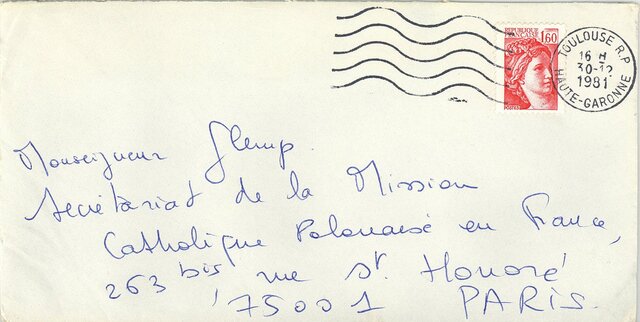 REPUBLIQUE
FRANÇAISE
1,60
POSTES
TOULOUSE R.P
16 H
30-12
1981
HAUTE-GARONNE
Monseigneur Glemp.
Secrétariat de la Mission
Catholique Polonaise en France,
263 bis rue St. Honoré
75001 PARIS.